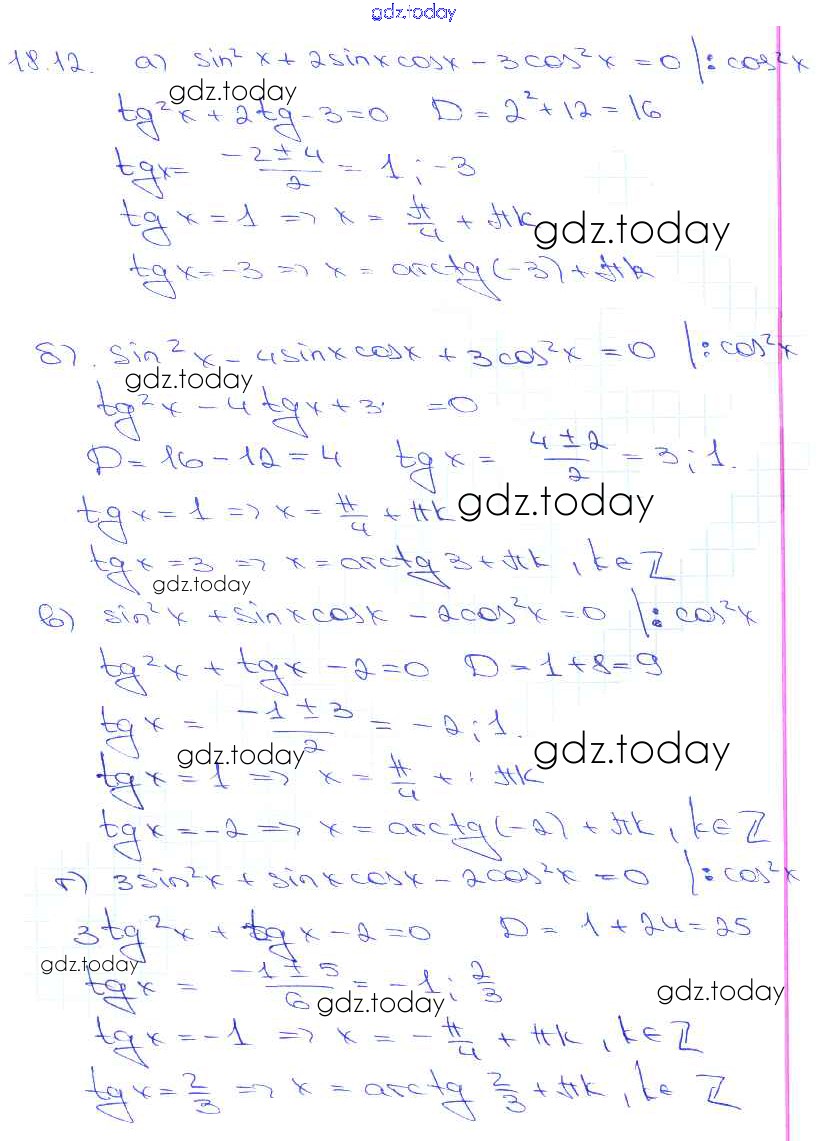 gdz.today
18.12. а) sin² x + 2sinxcosx - 3cos²x = 0 |: cos²x
gdz.today
tg²x + 2tg - 3 = 0 D = 2² + 12 = 16
tgx = (-2 ± 4)/2 = 1 ; -3
tgx = 1 => x = π/4 + πk
gdz.today
tgx = -3 => x = arctg(-3) + πk
б). sin²x - 4sinxcosx + 3cos²x = 0 |: cos²x
gdz.today
tg²x - 4tgx + 3 = 0
D = 16 - 12 = 4 tgx = (4 ± 2)/2 = 3 ; 1.
tgx = 1 => x = π/4 + πk
gdz.today
tgx = 3 => x = arctg3 + πk , k∈ℤ
gdz.today
в) sin²x + sinxcosx - 2cos²x = 0 |: cos²x
tg²x + tgx - 2 = 0 D = 1 + 8 = 9
tgx = (-1 ± 3)/2 = -2 ; 1.
gdz.today
gdz.today
tgx = 1 => x = π/4 + πk
tgx = -2 => x = arctg(-2) + πk , k∈ℤ
г) 3sin²x + sinxcosx - 2cos²x = 0 |: cos²x
3tg²x + tgx - 2 = 0 D = 1 + 24 = 25
gdz.today
tgx = (-1 ± 5)/6 = -1 ; 2/3
gdz.today
gdz.today
tgx = -1 => x = -π/4 + πk , k∈ℤ
tgx = 2/3 => x = arctg 2/3 + πk , k∈ℤ